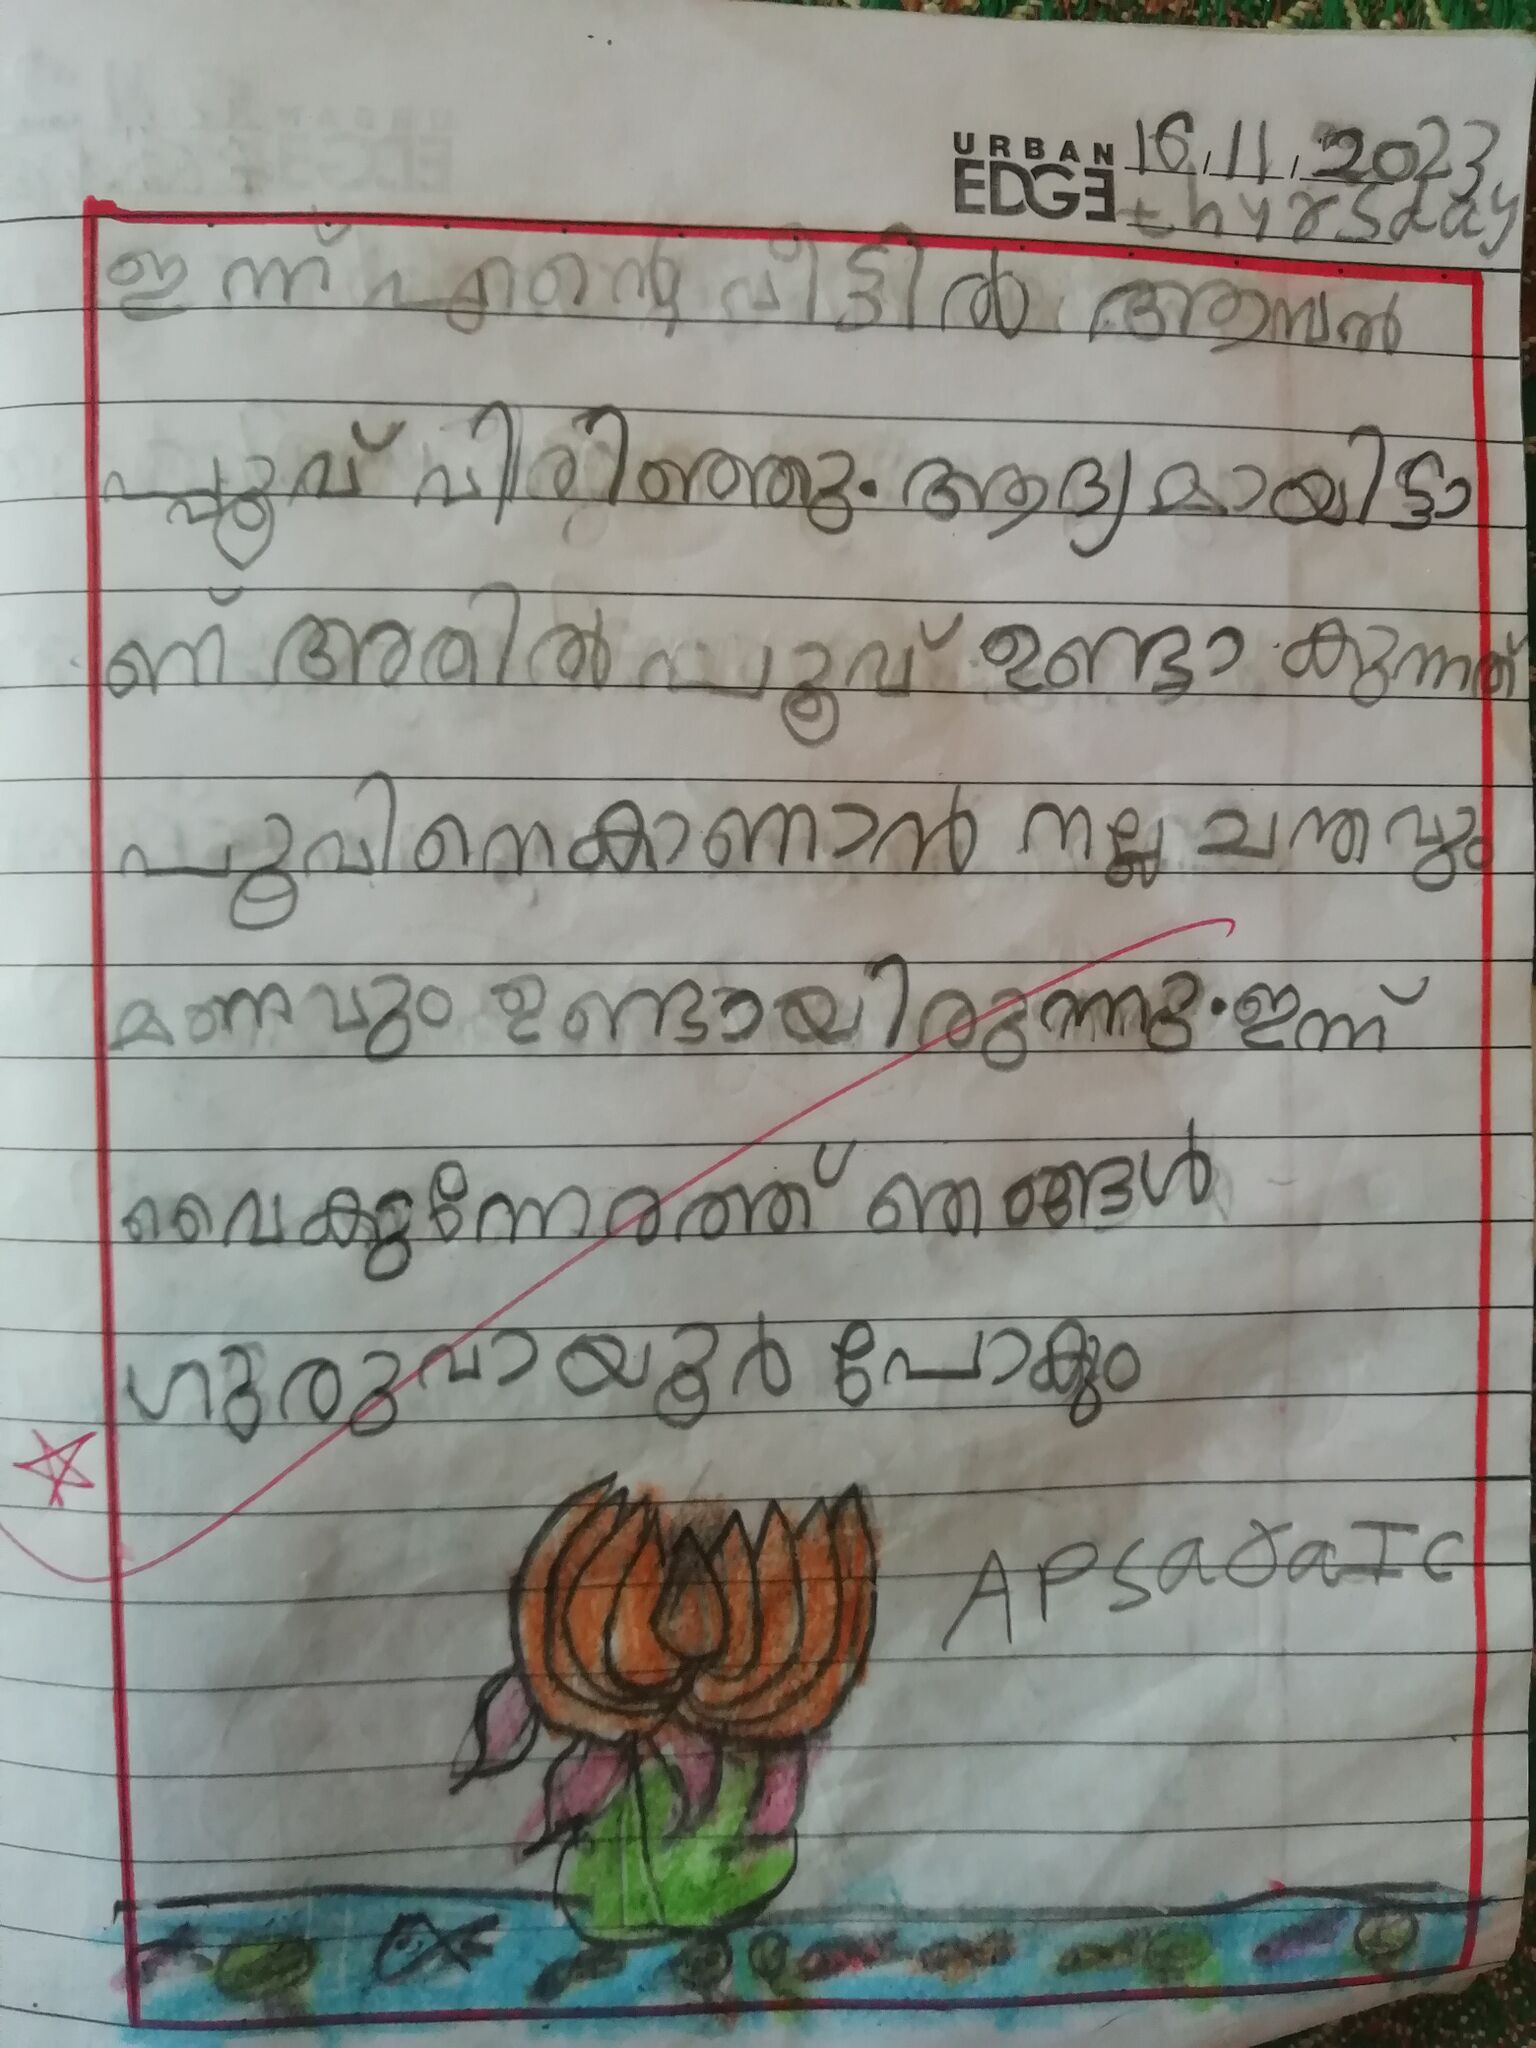 URBAN EDGE 16.11.2023
thyrsday
ഇന്ന് എന്റെ വീട്ടിൽ ആമ്പൽ
പ്പൂവ് വിരിഞ്ഞു. ആദ്യമായിട്ടാ
ണ് അതിൽ പൂവ് ഉണ്ടാകുന്നത്
പൂവിനെ കാണാൻ നല്ല ചന്തവും
മണവും ഉണ്ടായിരുന്നു. ഇന്ന്
വൈകുന്നേരത്ത് ഞങ്ങൾ
ഗുരുവായൂർ പോകും
APSaraIC